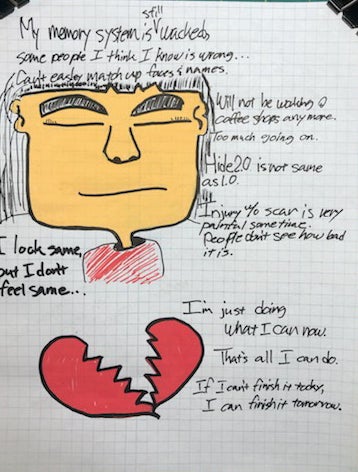 My memory system is still whacked,
some people I think I know is wrong...
Can't easily match up faces & names.
Will not be working @
coffee shops anymore.
Too much going on.
Hide2.0 is not same
as 1.0.
Injury w/o scar is very
painful sometime.
People don't see how bad
it is.
I look same,
but I don't
feel same...
I'm just doing
what I can now.
That's all I can do.
If I can't finish it today,
I can finish it tomorrow.